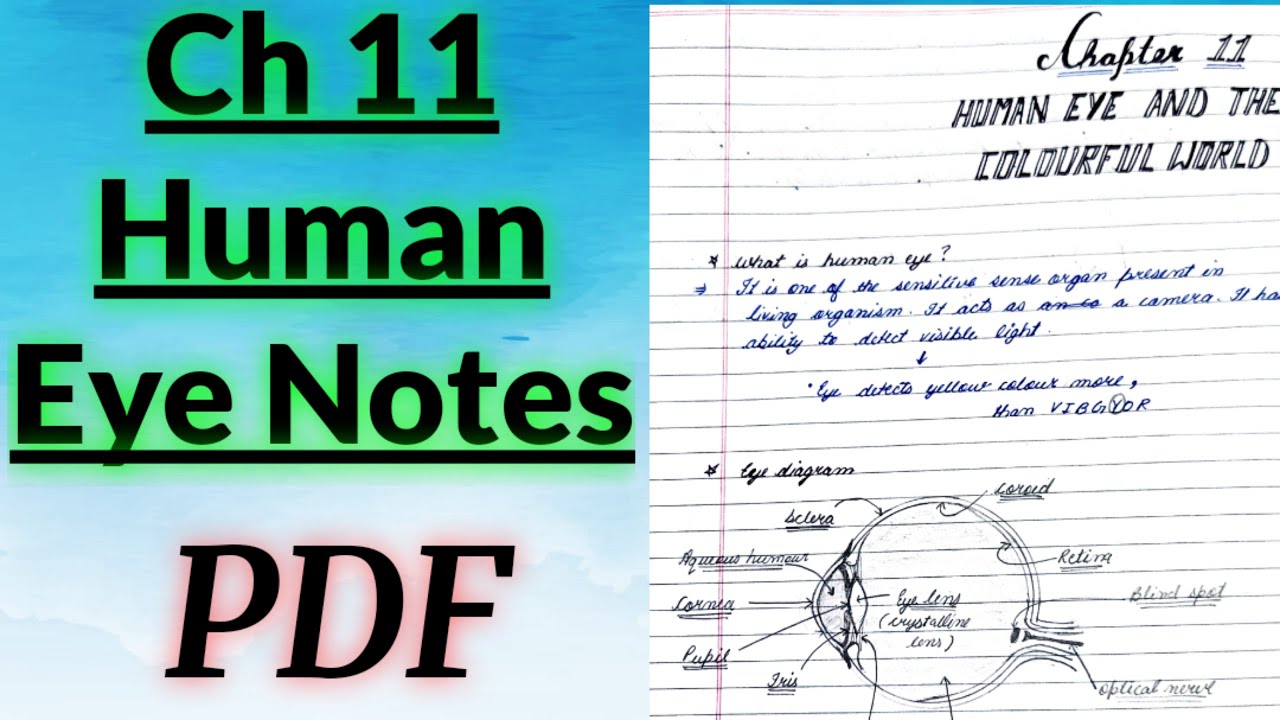 Ch 11
Human
Eye Notes
PDF
Chapter 11
HUMAN EYE AND THE
COLOURFUL WORLD
* What is human eye?
⇒ It is one of the sensitive sense organ present in
living organism. It acts as a camera. It ha
ability to detect visible light.
↓
• Eye detects yellow colour more,
than VIBGYOR
* Eye diagram
Coroid
Sclera
Aqueous humour
Retina
Cornea
Eye lens
(crystalline
lens)
Blind spot
Pupil
Iris
optical nerve